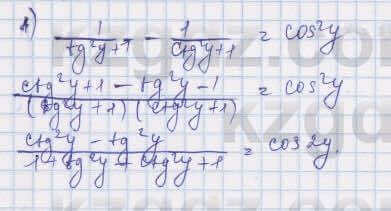 1) 1/(tg²y+1) - 1/(ctg²y+1) = cos²y
(ctg²y+1 - tg²y-1)/((tg²y+1)(ctg²y+1)) = cos²y
(ctg²y - tg²y)/(1+tg²y+ctg²y+1) = cos2y.